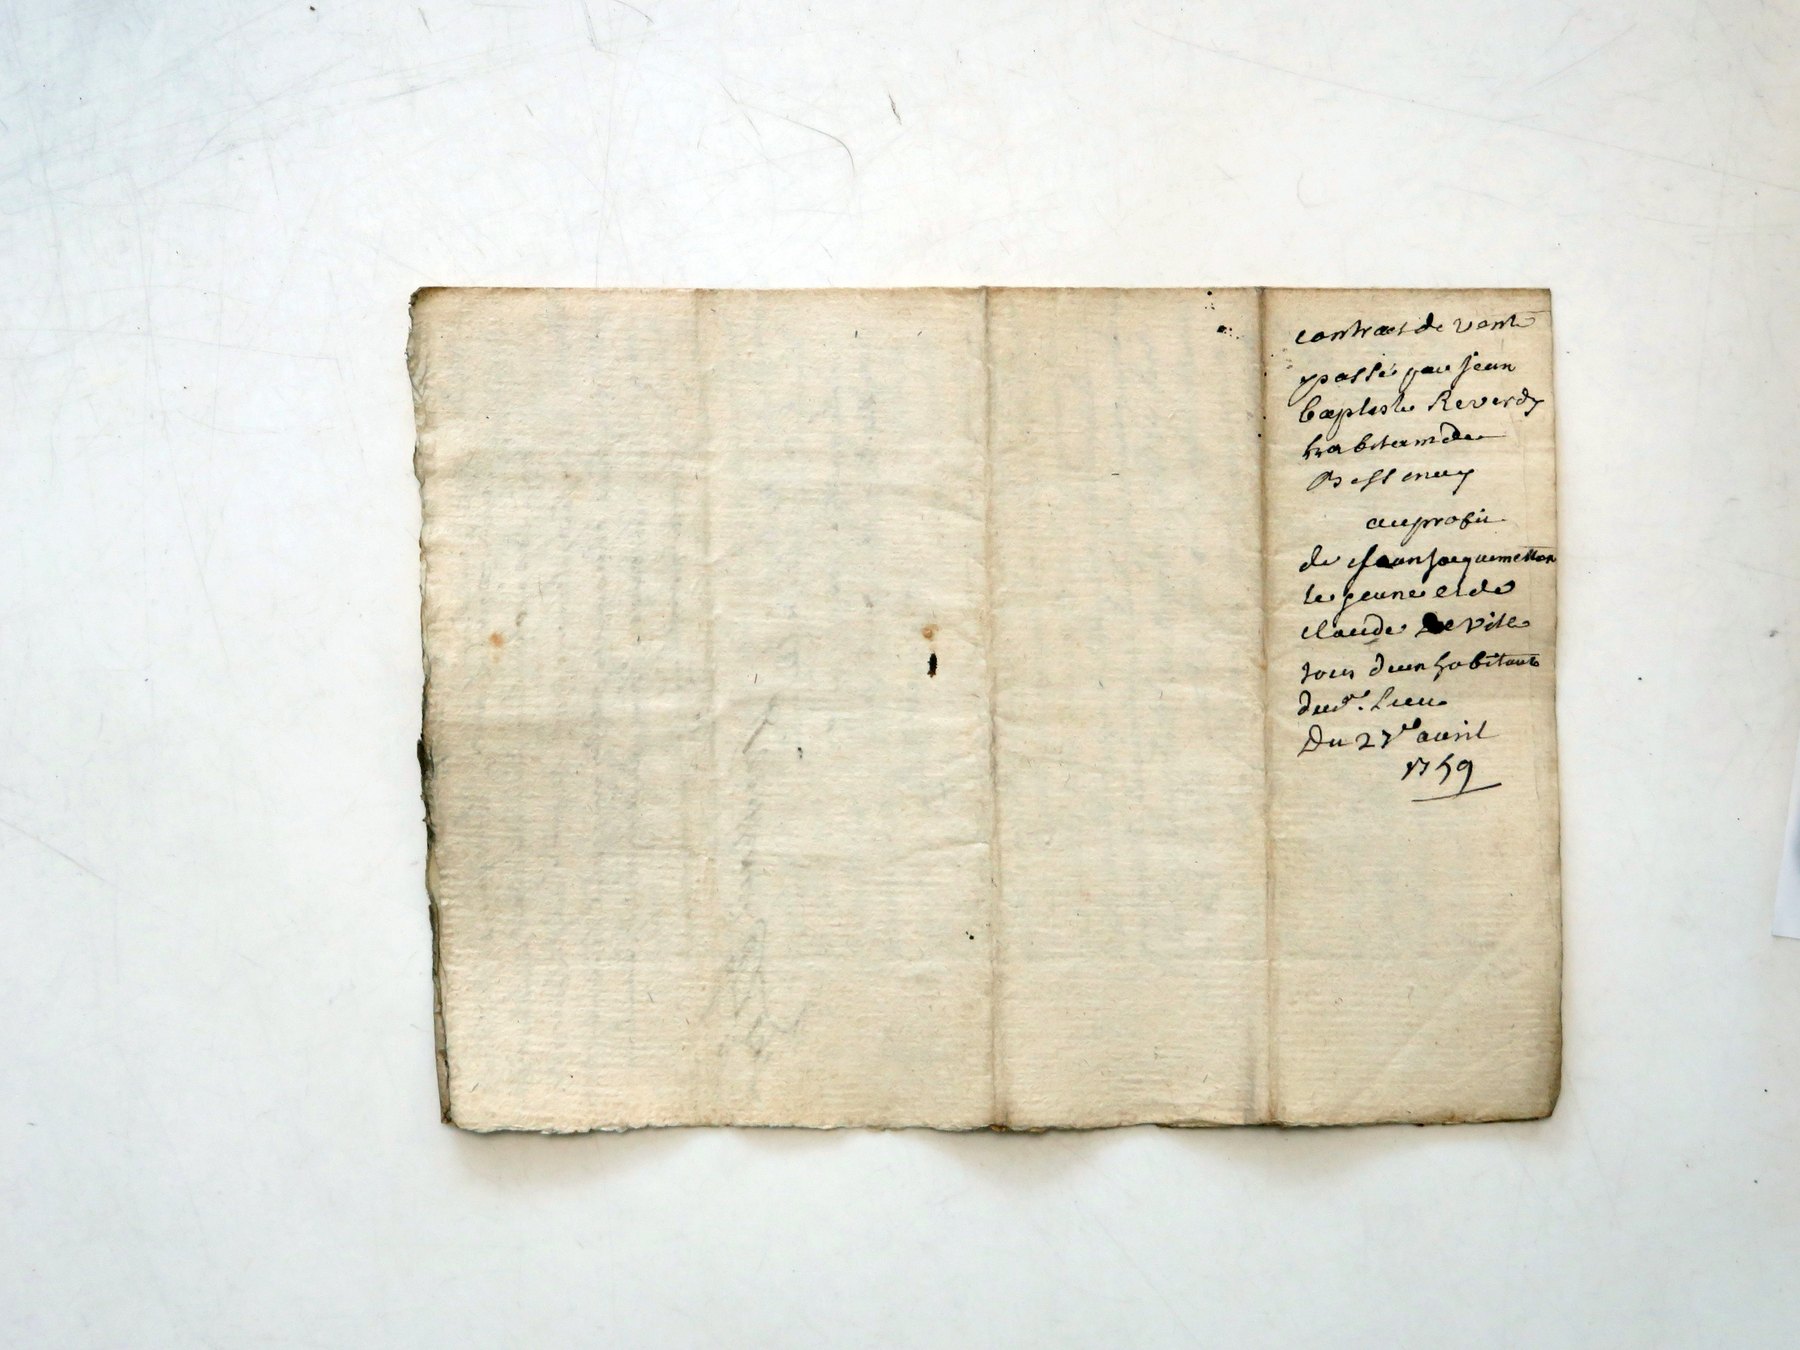 contract de vente
passée par jean
baptiste Reverdy
habitant de
Bessenay
au profit
de Jean Jacquemetton
le jeune et de
claude Deville
tous deux habitants
dud.t Lieu
Du 27e avril
1759